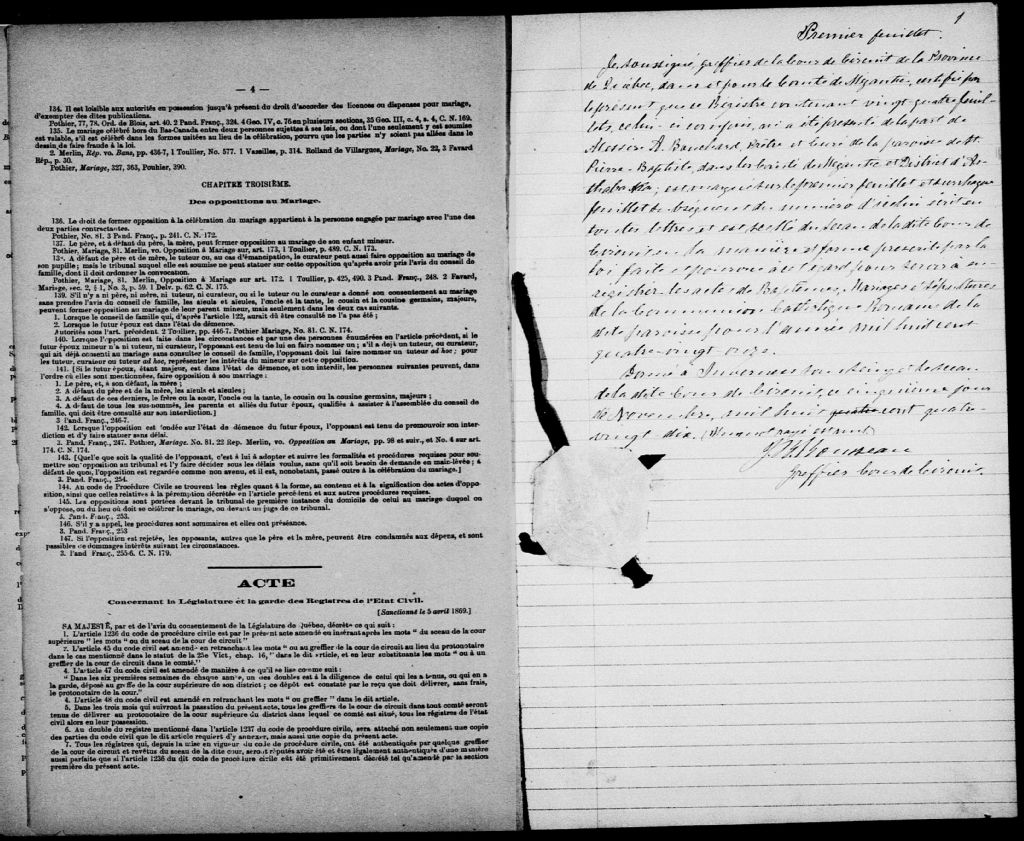 — 4 —
134. Il est loisible aux autorités en possession jusqu'à présent du droit d'accorder des licences ou dispenses pour mariage,
d'exempter des dites publications.
Pothier, 77, 78. Ord. de Blois, art. 40. 2 Pand. Franç., 324. 4 Geo. IV, c. 76 en plusieurs sections, 35 Geo. III, c. 4, s. 4, C. N. 169.
135. Le mariage célébré hors du Bas-Canada entre deux personnes sujettes à ses lois, ou dont l'une seulement y est soumise
est valable, s'il est célébré dans les formes usitées au lieu de la célébration, pourvu que les parties n'y soient pas allées dans le
dessin de faire fraude à la loi.
2. Merlin, Rép. vo. Bans, pp. 436-7, 1 Toullier, No. 577. 1 Vazeilles, p. 314. Rolland de Villargues, Mariage, No. 22, 3 Favard
Rép., p. 30.
Pothier, Mariage, 327, 363, Pouhier, 390.
CHAPITRE TROISIÈME.
Des oppositions au Mariage.
136. Le droit de former opposition à la célébration du mariage appartient à la personne engagée par mariage avec l'une des
deux parties contractantes.
Pothier, No. 81, 3 Pand. Franç., p. 241. C. N. 172.
137. Le père, et à défaut du père, la mère, peut former opposition au mariage de son enfant mineur.
Pothier, Mariage, 81. Merlin, vo. Opposition à Mariage sur, art. 173, 1 Toullier, p. 489. C. N. 173.
A défaut de père et de mère, le tuteur ou, au cas d'émancipation, le curateur peut aussi faire opposition au mariage de
son pupille; mais le tribunal auquel elle est soumise ne peut statuer sur cette opposition qu'après avoir pris l'avis du conseil de
famille, dont il doit ordonner la convocation.
Pothier, Mariage, 81. Merlin, Opposition à Mariage sur art. 172. 1 Toullier, p. 425, 490. 3 Pand. Franç., 248. 2 Favard,
Mariage, sec. 2, § 1, No. 3, p. 59. 1 Delv. p. 62. C. N. 175.
139. S'il n'y a ni père, ni mère, ni tuteur, ni curateur, ou si le tuteur ou le curateur a donné son consentement au mariage
sans prendre l'avis du conseil de famille, les aïeuls et aïeules, l'oncle et la tante, le cousin et la cousine germains, majeurs,
peuvent former opposition au mariage de leur parent mineur, mais seulement dans les deux cas suivants.
1. Lorsque le conseil de famille qui, d'après l'article 122, aurait dû être consulté ne l'a pas été;
2. Lorsque le futur époux est dans l'état de démence.
Autorités sous l'art. précédent. 2 Toullier, pp. 446-7. Pothier Mariage, No. 81. C. N. 174.
140. Lorsque l'opposition est faite dans les circonstances et par une des personnes énumérées en l'article précédent, si le
futur époux mineur n'a ni tuteur, ni curateur, l'opposant est tenu de lui en faire nommer un; s'il a déjà un tuteur, ou curateur,
qui ait déjà consenti au mariage sans consulter le conseil de famille, l'opposant doit lui faire nommer un tuteur ad hoc; pour
les tuteur, curateur ou tuteur ad hoc, représenter les intérêts du mineur sur cette opposition.
141. [Si le futur époux, étant majeur, est dans l'état de démence, et non interdit, les personnes suivantes peuvent, dans
l'ordre où elles sont mentionnées, faire opposition à son mariage:
1. Le père, et, à son défaut, la mère;
2. A défaut du père et de la mère, les aïeuls et aïeules;
3. A défaut de ces derniers, le frère ou la sœur, l'oncle ou la tante, le cousin ou la cousine germains, majeurs;
4. A défaut de tous les sus-nommés, les parents et alliés du futur époux, qualifiés à assister à l'assemblée du conseil de
famille, qui doit être consulté sur son interdiction.]
3 Pand. Franç., 246-7.
142. Lorsque l'opposition est fondée sur l'état de démence du futur époux, l'opposant est tenu de promouvoir son inter-
diction et d'y faire statuer sans délai.
3. Pand. Franç., 247. Pothier, Mariage. No. 81, 22 Rep. Merlin, vo. Opposition au Mariage, pp. 98 et suiv., et No. 4 sur art.
174. C. N. 174.
143. [Quelle que soit la qualité de l'opposant, c'est à lui à adopter et suivre les formalités et procédures requises pour sou-
mettre son opposition au tribunal et l'y faire décider sous les délais voulus, sans qu'il soit besoin de demande en main-levée; à
défaut de quoi, l'opposition est regardée comme non avenu, et il est, nonobstant, passé outre à la célébration du mariage.]
3. Pand. Franç., 254.
144. Au code de Procédure Civile se trouvent les règles quant à la forme, au contenu et à la signification des actes d'oppo-
sition, ainsi que celles relatives à la péremption décrétée en l'article précédent et aux autres procédures requises.
145. Les oppositions sont portées devant le tribunal de première instance du domicile de celui au mariage duquel on
s'oppose, ou du lieu où doit se célébrer le mariage, ou devant un juge de ce tribunal.
3. Pand. Franç., 253.
146. S'il y a appel, les procédures sont sommaires et elles ont préséance.
3. Pand. Franç., 253
147. Si l'opposition est rejetée, les opposants, autres que le père et la mère, peuvent être condamnés aux dépens, et sont
passibles de dommages intérêts suivant les circonstances.
3. Pand Franç., 255-6. C. N. 179.
ACTE
Concernant la Législature et la garde des Registres de l'Etat Civil.
[Sanctionné le 5 avril 1869.]
SA MAJESTÉ, par et de l'avis du consentement de la Législature de Québec, décrète ce qui suit:
1. L'article 1236 du code de procédure civile est par le présent acte amendé en insérant après les mots "du sceau de la cour
supérieure" les mots "ou du sceau de la cour de circuit"
2. L'article 45 du code civil est amendé en retranchant les mots "ou au greffier de la cour de circuit au lieu du protonotaire
dans le cas mentionné dans le statut de la 25e Vict., chap. 16," dans le dit article, et en leur substituant les mots "ou à un
greffier de la cour de circuit dans le comté."
4. L'article 47 du code civil est amendé de manière à ce qu'il se lise comme suit:
"Dans les six premières semaines de chaque année, un des doubles est à la diligence de celui qui les a tenus, ou qui en a
la garde, déposé au greffe de la cour supérieure de son district; ce dépôt est constaté par le reçu que doit délivrer, sans frais,
le protonotaire de la cour."
4. L'article 48 du code civil est amendé en retranchant les mots "ou greffier" dans le dit article.
5. Dans les trois mois qui suivront la passation du présent acte, tous les greffiers de la cour de circuit dans tout comté seront
tenus de délivrer au protonotaire de la cour supérieure du district dans lequel ce comté est situé, tous les régistres de l'état
civil alors en leur possession.
6. Au double du registre mentionné dans l'article 1237 du code de procédure civile, sera attaché non seulement une copie
des parties du code civil que le dit article requiert d'y annexer, mais aussi une copie du présent acte.
7. Tous les régistres qui, depuis la mise en vigueur du code de procédure civile, ont été authentiqués par quelque greffier
de la cour de circuit et revêtus du sceau de la dite cour, seront réputés avoir été et être légalement authentiqués d'une manière
aussi parfaite que si l'article 1236 du dit code de procédure civile eût été primitivement décrété tel qu'amendé par la section
première du présent acte.
1
Premier feuillet.
Je, soussigné, greffier de la Cour de Circuit de la Province
de Québec, dans et pour le Comté de Mégantic, certifie par
le présent que ce Registre contenant vingt quatre feuil-
lets, celui-ci compris, m'a été présenté de la part de
Messire Bouchard, Prêtre et Curé de la paroisse de St.
Pierre-Baptiste, dans le Comté de Mégantic et District d'Ar-
thabaska; est marqué sur le premier feuillet et sur chaque
feuillet subséquent du numéro d'icelui écrit en
toutes lettres et est scellé du sceau de la dite Cour de
Circuit en la manière et forme prescrite par la
loi faite et pourvue à cet égard pour servir à en-
régistrer les actes de Baptêmes, Mariages & Sépultures
de la Communion Catholique Romaine de la
dite paroisse pour l'année mil huit cent
quatre-vingt onze.
Donné à Inverness sous le seing et sceau
de la dite Cour de Circuit, ce cinquième jour
de Novembre, mil huit cent quatre
vingt dix. (Un mot rayé est nul)
Rousseau
Greffier Cour de Circuit.